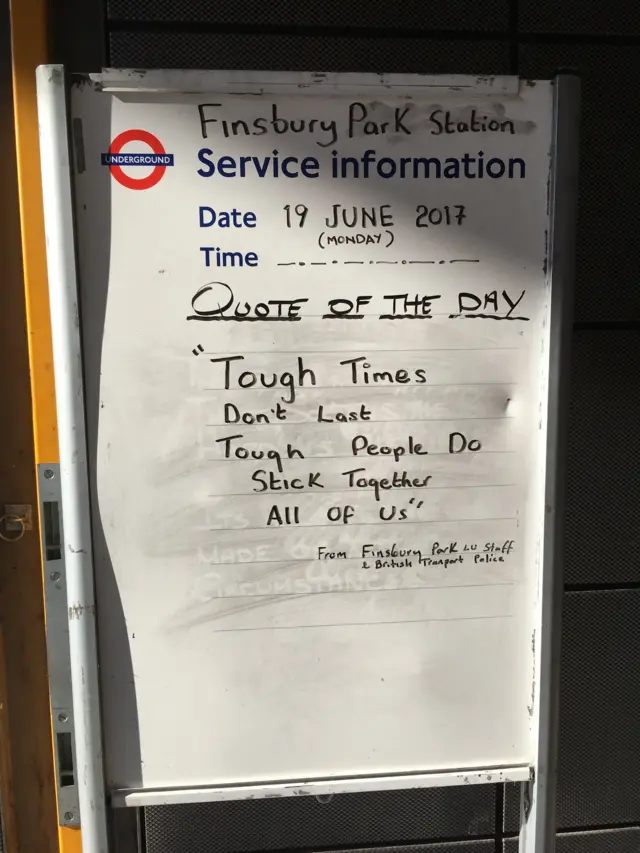 Finsbury Park Station
UNDERGROUND
Service information
Date 19 JUNE 2017
(MONDAY)
Time
QUOTE OF THE DAY
"Tough Times
Don't Last
Tough People Do
Stick Together
All Of Us"
From Finsbury Park LU Staff
& British Transport Police
ITS
MADE
CIRCUMSTANCE